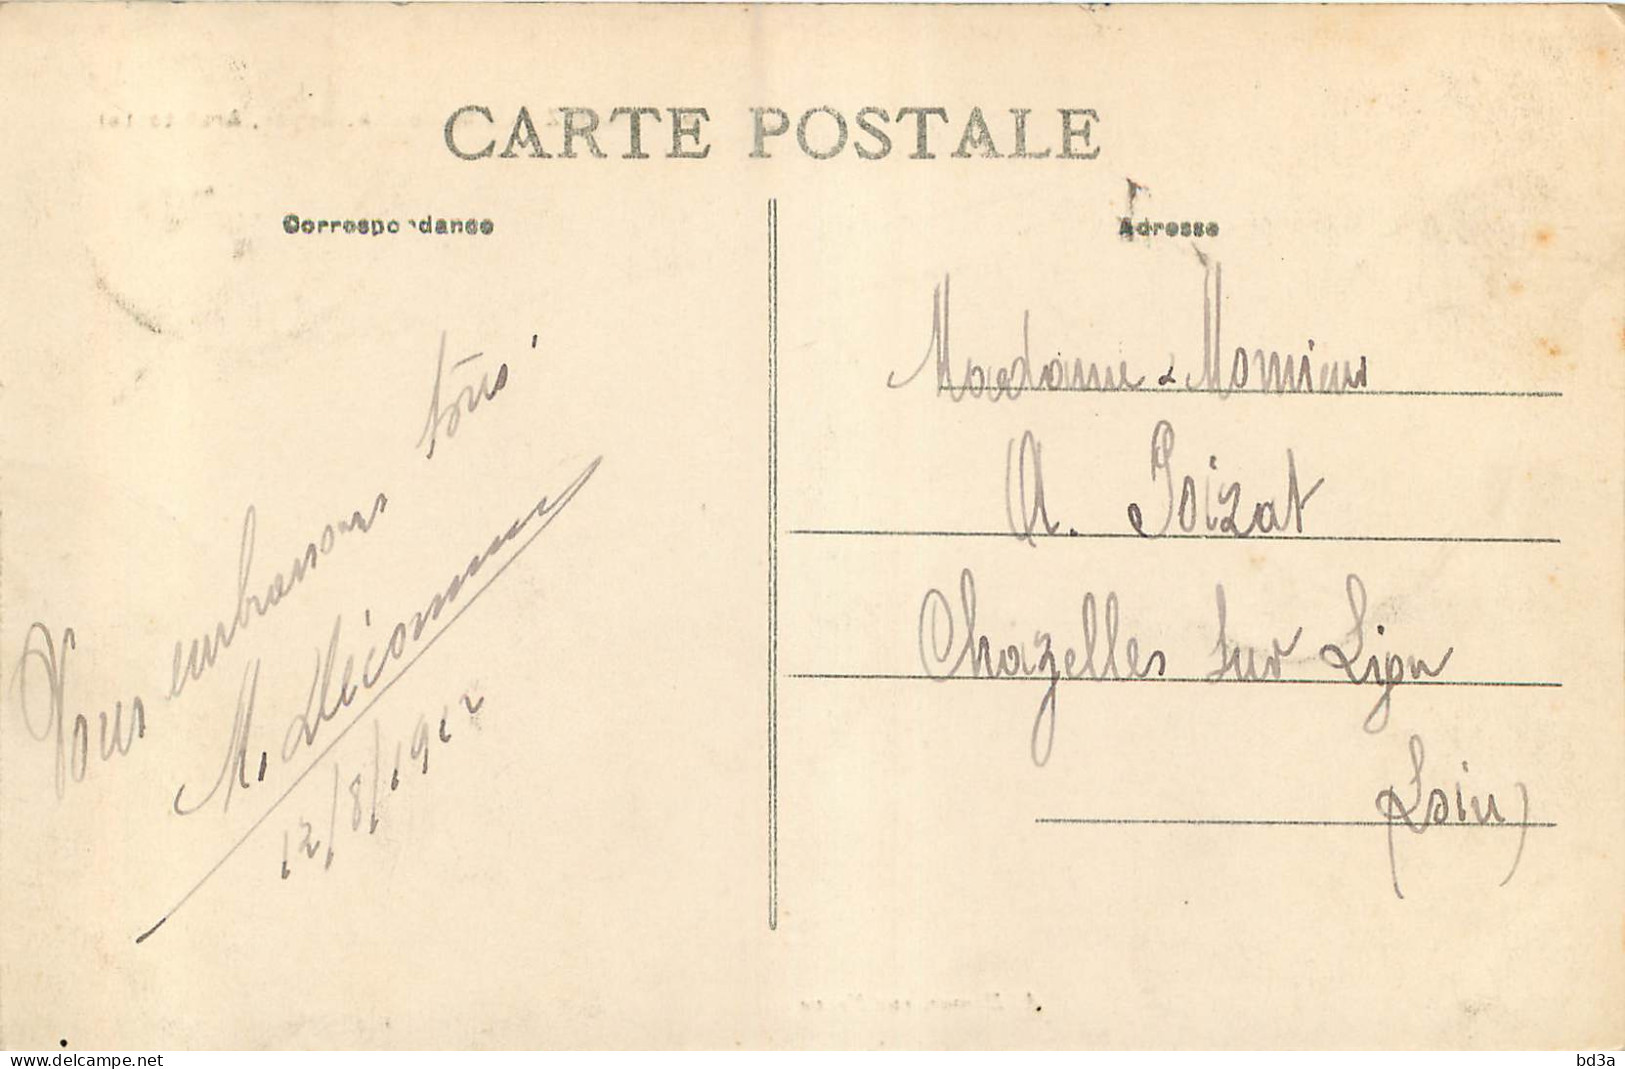 CARTE POSTALE
Correspondance
Adresse
Vous embrassons tous
M. Décommer
12/8/1912
Madame & Monsieur
A. Poizat
Chazelles sur Lyon
(Loire)
www.delcampe.net
bd3a